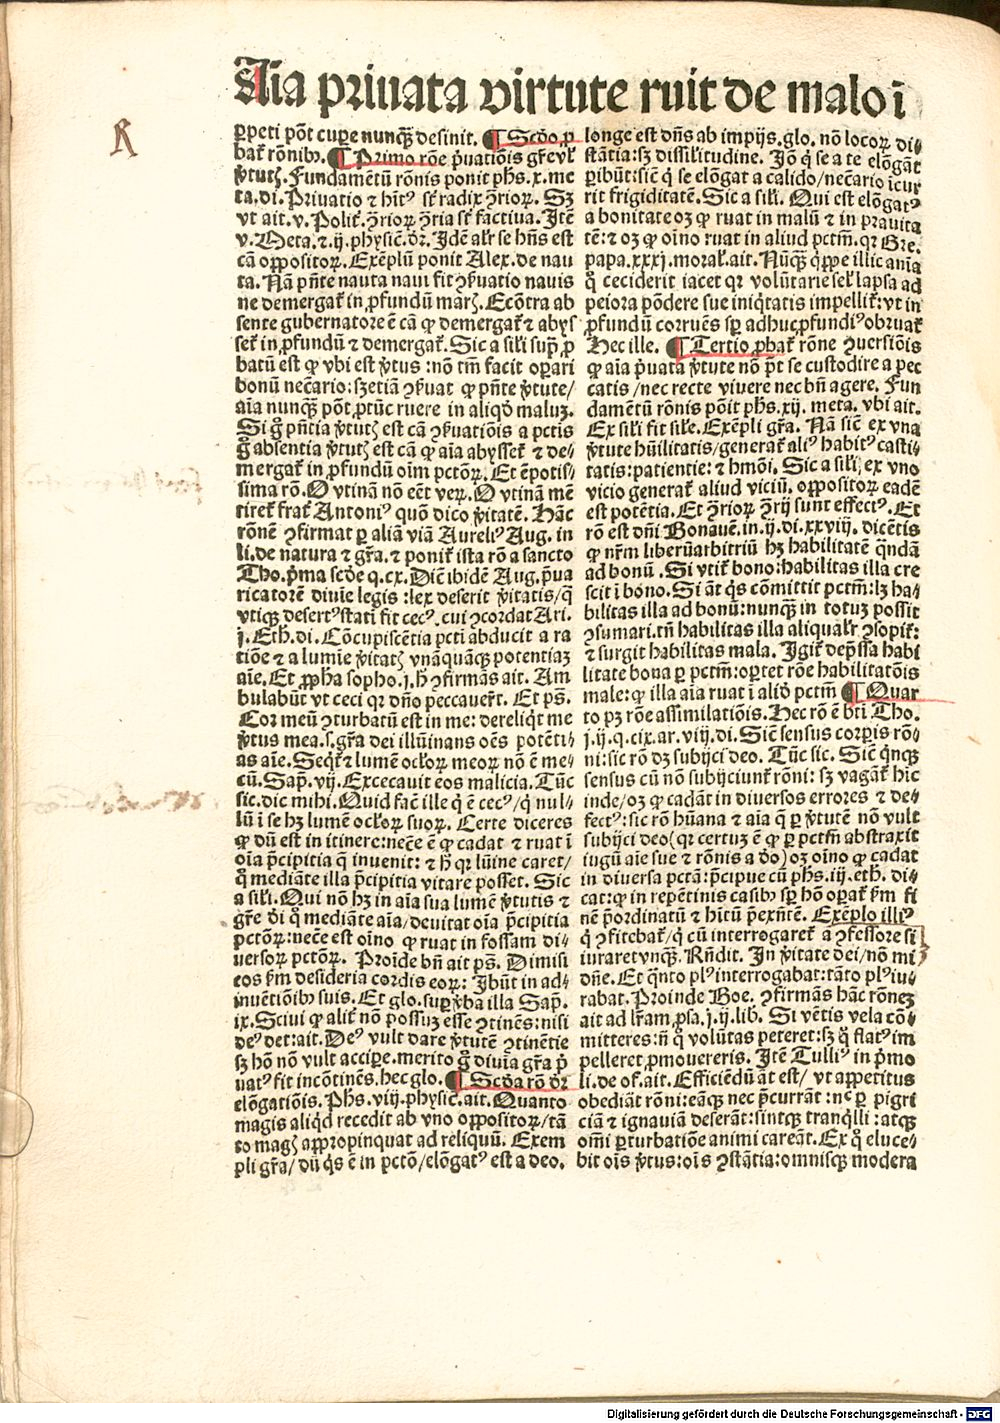 Aĩa priuata virtute ruit de malo ĩ
R
ꝑpeti põt cuꝑe nunqᷓ desinit. ¶ Scd̓o ꝓ
bat᷑ rõnibꝰ. ¶ Primo rõe p̃uatiõis gr̃e vl̓
v̓tutꝭ. Fundamẽtũ rõnis ponit phs. x. me
ta. di. Priuatio ⁊ hitꝰ st᷑ radix ꝯ̃rioꝝ. Sꝫ
vt ait. v. Polit̃. ꝯ̃rioꝝ ꝯ̃ria st᷑ factiua. Itẽ
v. Meta. ⁊. ij. physic̃. dr̃. Idẽ alr̃ se hñs est
cã oꝓpositoꝝ. Exẽplũ ponit Alex. de nau
ta. Nã pñte nauta naui fit ꝯ̃seruatio nauis
ne demergat᷑ in ꝓfundũ marꝭ. Ecõtra ab
sente gubernatore ẽ cã ꝙ demergat᷑ ⁊ abys
set᷑ in ꝓfundũ ⁊ demergat᷑. Sic a sil̓i supᷓ ꝓ
batũ est ꝙ vbi est v̓tus : nõ tm̃ facit oꝑari
bonũ nec̃ario: sꝫ etiã ꝯ̃seruat ꝙ pñte v̓tute/
aĩa nunqᷓ põt ꝓtũc ruere in aliqḋ maluꝫ.
Si gͦ pñtia v̓tutꝭ est cã ꝯ̃seruatiõis a pctis
gͦ absentia v̓tutꝭ est cã ꝙ aĩa abysset᷑ ⁊ de⸗
mergat᷑ in ꝓfundũ oĩm pctõꝝ. Et ẽ potis⸗
sima rõ. O vtinã nõ eẽt veꝝ. O vtinã mẽ
tiret᷑ frat᷑ Antoniꝰ quõ dico v̓itatẽ. Hãc
rõnẽ ꝯfirmat ꝑ aliã viã Aureliꝰ Aug. in
li. de natura ⁊ gr̃a. ⁊ ponit᷑ ista rõ a sancto
Tho. p̃ma scd̓e q. cx. Dic̃ ibidẽ Aug. p̃ua
ricatorẽ diuie legis : lex deserit v̓itatis/qᷓ
vtiqꝫ desertꝰ stati fit cecꝰ. cui ꝯcordat Ari.
j. Eth. di. Cõcupiscẽtia pcti abducit a ra
tiõe ⁊ a lumie v̓itatꝭ vnãquãqꝫ potentiaꝫ
aĩe. Et ꝓpha sopho. j. h̃ ꝯfirmãs ait. Am
bulabũt vt ceci qꝛ dño peccauer̃t. Et ps̃.
Cor meũ ꝯturbatũ est in me: dereliqͥt me
v̓tus mea. s. gr̃a dei illũinans oẽs potẽti⸗
as aĩe. Seqͥt᷑ ⁊ lumẽ ocl̓oꝝ meoꝝ nõ ẽ me⸗
cũ. Sap̃. vij. Excecauit eos malicia. Tũc
sic. dic mihi. Quid fac̃ ille qͥ ẽ cecꝰ/qͥ nul⸗
lũ ĩ se hꝫ lumẽ ocl̓oꝝ suoꝝ. Certe diceres
ꝙ dũ est in itinere: nec̃e ẽ ꝙ cadat ⁊ ruat ĩ
oĩa p̃cipitia q̃ inuenit: ⁊ h̃ qꝛ lũine caret/
qͦ mediãte illa p̃cipitia vitare posset. Sic
a sil̓i. Qui nõ hꝫ in aĩa sua lumẽ v̓tutis ⁊
gr̃e di qͦ mediãte aĩa/deuitat oĩa p̃cipitia
pctõꝝ: nec̃e est oĩno ꝙ ruat in fossam di⸗
uersoꝝ pctõꝝ. Proĩde bñ ait ps̃. Dimisi
eos ẜm desideria cordis eoꝝ: Ibũt in ad⸗
inuẽtiõibꝰ suis. Et glo. suꝑ v̓ba illa Sap̃.
ix. Sciui ꝙ alit᷑ nõ possuꝫ esse ꝯtinẽs: nisi
deꝰ det: ait. Deꝰ vult dare v̓tutẽ ꝯtinẽtie
sꝫ hõ nõ vult acciꝑe. merito gͦ diuĩa gr̃a p̃
uatꝰ fit incõtinẽs. hec glo. ¶ Scd̓a rõ dr̃
elõgatiõis. Phs. vij. physic̃. ait. Quanto
magis aliqͥd recedit ab vno oꝓpositoꝝ/tã
to magꝭ apꝓpinquat ad reliquũ. Exem
pli gr̃a/ dũ qͥs ẽ in pctõ/elõgatꝰ est a deo.
longe est dñs ab impijs. glo. nõ locoꝝ di⸗
stãtia: sꝫ dissil̓itudine. Iõ qͥ se a te elõgãt
ꝑibũt: sic̃ qͥ se elõgat a calido/nec̃ario ĩcur
rit frigiditatẽ. Sic a sil̓i. Qui est elõgatꝰ
a bonitate oꝫ ꝙ ruat in malũ ⁊ in prauita
tẽ: ⁊ oꝫ ꝙ oĩno ruat in aliud pctm̃. qꝛ Gre.
papa. xxxj. moral̓. ait. Nũqᷓ qͥppe illic anĩa
qͦ ceciderit iacet qꝛ volũtarie sel̓ lapsa ad
peiora põdere sue iniqͥtatis impellit᷑: vt in
ꝓfundũ corruẽs sꝑ adhuc ꝓfundiꝰ obruat᷑
Hec ille. ¶ Tertio ꝓbat᷑ rõne ꝯuersiõis
ꝙ aĩa p̃uata v̓tute nõ pt̃ se custodire a pec
catis/nec recte viuere nec bñ agere. Fun
damẽtũ rõnis põit phs. xij. meta. vbi ait.
Ex sil̓i fit sil̓e. Exẽpli gr̃a. Nã sic̃ ex vna
v̓tute hũilitatis/generat᷑ aliꝰ habitꝰ casti⸗
tatis: patientie: ⁊ hmõi. Sic a sil̓i, ex vno
vicio generat᷑ aliud viciũ. oꝓpositoꝝ eadẽ
est potẽtia. Et ꝯ̃rioꝝ ꝯ̃rij sunt effectꝰ. Et
rõ est dñi Bonauẽ. in. ij. di. xxviij. dicẽtis
ꝙ nr̃m liberũ arbitriũ hꝫ habilitatẽ qͥndã
ad bonũ. Si vtit᷑ bono: habilitas illa cre
scit ĩ bono. Si aũt qͥs cõmittit pctm̃: lꝫ ha⸗
bilitas illa ad bonũ: nunqᷓ in totuꝫ possit
ꝯsumari. tñ habilitas illa aliqualr̃ ꝯsopit᷑:
⁊ surgit habilitas mala. Igit᷑ dep̃ssa habi
litate bona ꝑ pctm̃: oꝑtet rõe habilitatõis
male: ꝙ illa aĩa ruat ĩ aliḋ pctm̃ ¶ Quar
to pꝫ rõe assimilatiõis. Hec rõ ẽ bti Tho.
j. ij. q. cix. ar. viij. di. Sic̃ sensus corpis rõ⸗
ni: sic rõ dꝫ subijci deo. Tũc sic. Sic̃ qͥnqꝫ
sensus cũ nõ subijciunt᷑ rõni: sꝫ vagant᷑ hic
inde/oꝫ ꝙ cadãt in diuersos errores ⁊ de⸗
fectꝰ: sic rõ hũana ⁊ aĩa q̃ ꝑ v̓tutẽ nõ vult
subijci deo( qꝛ certuꝫ ẽ ꝙ ꝑ pctm̃ abstraxit
iugũ aĩe sue ⁊ rõnis a dõ) oꝫ oĩno ꝙ cadat
in diuersa pctã: p̃cipue cũ phs. iij. eth. di⸗
cat: ꝙ in repẽtinis casibꝰ sꝑ hõ oꝑat᷑ ẜm fi
nẽ p̃ordinatũ ⁊ hĩtũ p̃exñtẽ. Exẽplo illiꝰ
qͥ ꝯfitebat᷑/qͥ cũ interrogaret᷑ a ꝯfessore si
iuraret vnqᷓ. Rñdit. In v̓itate dei/nõ mi
dñe. Et qͣnto plꝰ interrogabat: tãto plꝰ iu⸗
rabat. Proinde Boe. ꝯfirmãs hãc rõneꝫ
ait ad lr̃am, psa. j. ij. lib. Si vẽtis vela cõ⸗
mitteres: ñ qͦ volũtas peteret: sꝫ qͦ flatꝰ im
pelleret ꝓmouereris. Itẽ Tulliꝰ in p̃mo
li. de of. ait. Efficiẽdũ aũt est/ vt appetitus
obediãt rõni: eãqꝫ nec p̃currãt : nec ꝑ pigri
ciã ⁊ ignauiã deserãt: sintqꝫ tranqͥlli : atqꝫ
omĩ ꝑturbatiõe animi careãt. Ex qͦ eluce⸗
bit oĩs v̓tus: oĩs ꝯstãtia: omnisqꝫ modera
Digitalisierung gefördert durch die Deutsche Forschungsgemeinschaft - DFG